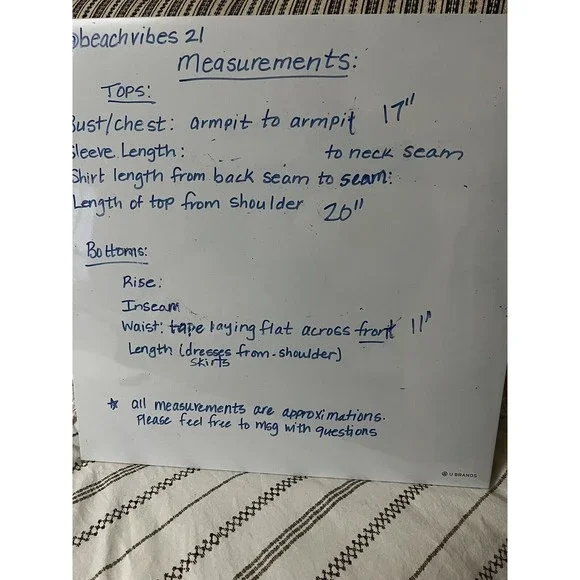 @beachvibes 21
Measurements:
TOPS:
Bust/chest: armpit to armpit 17"
Sleeve Length: to neck seam
Shirt length from back seam to seam:
Length of top from shoulder 20"
Bottoms:
Rise:
Inseam
Waist: tape laying flat across front 11"
Length (dresses from-shoulder)
skirts
☆ all measurements are approximations.
Please feel free to msg with questions
U BRANDS